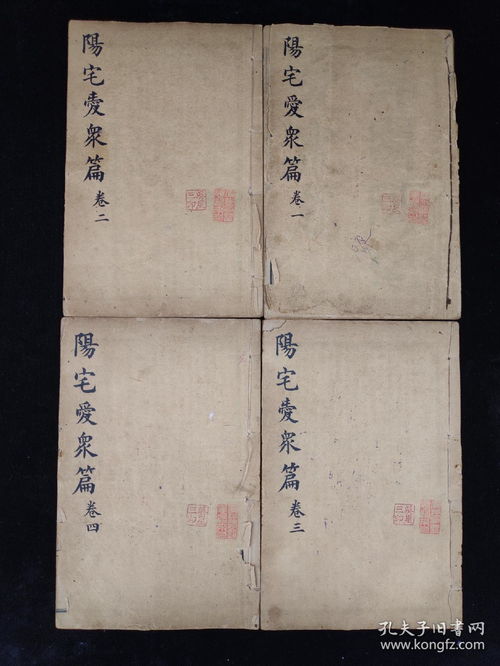 陽宅愛眾篇
卷一
陽宅愛眾篇
卷二
陽宅愛眾篇
卷三
陽宅愛眾篇
卷四
孔夫子旧书网
www.kongfz.com